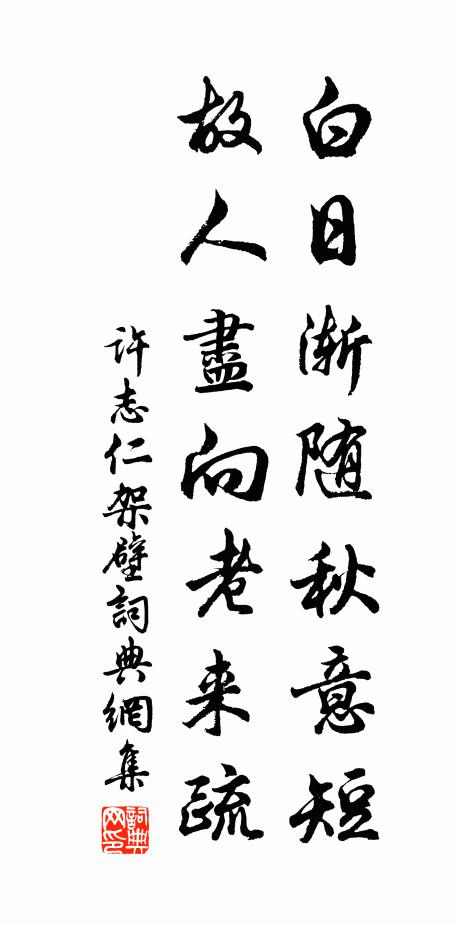 白日漸随秋意短
故人盡向老来疏
许志仁架壁詞典網集
詞典网印